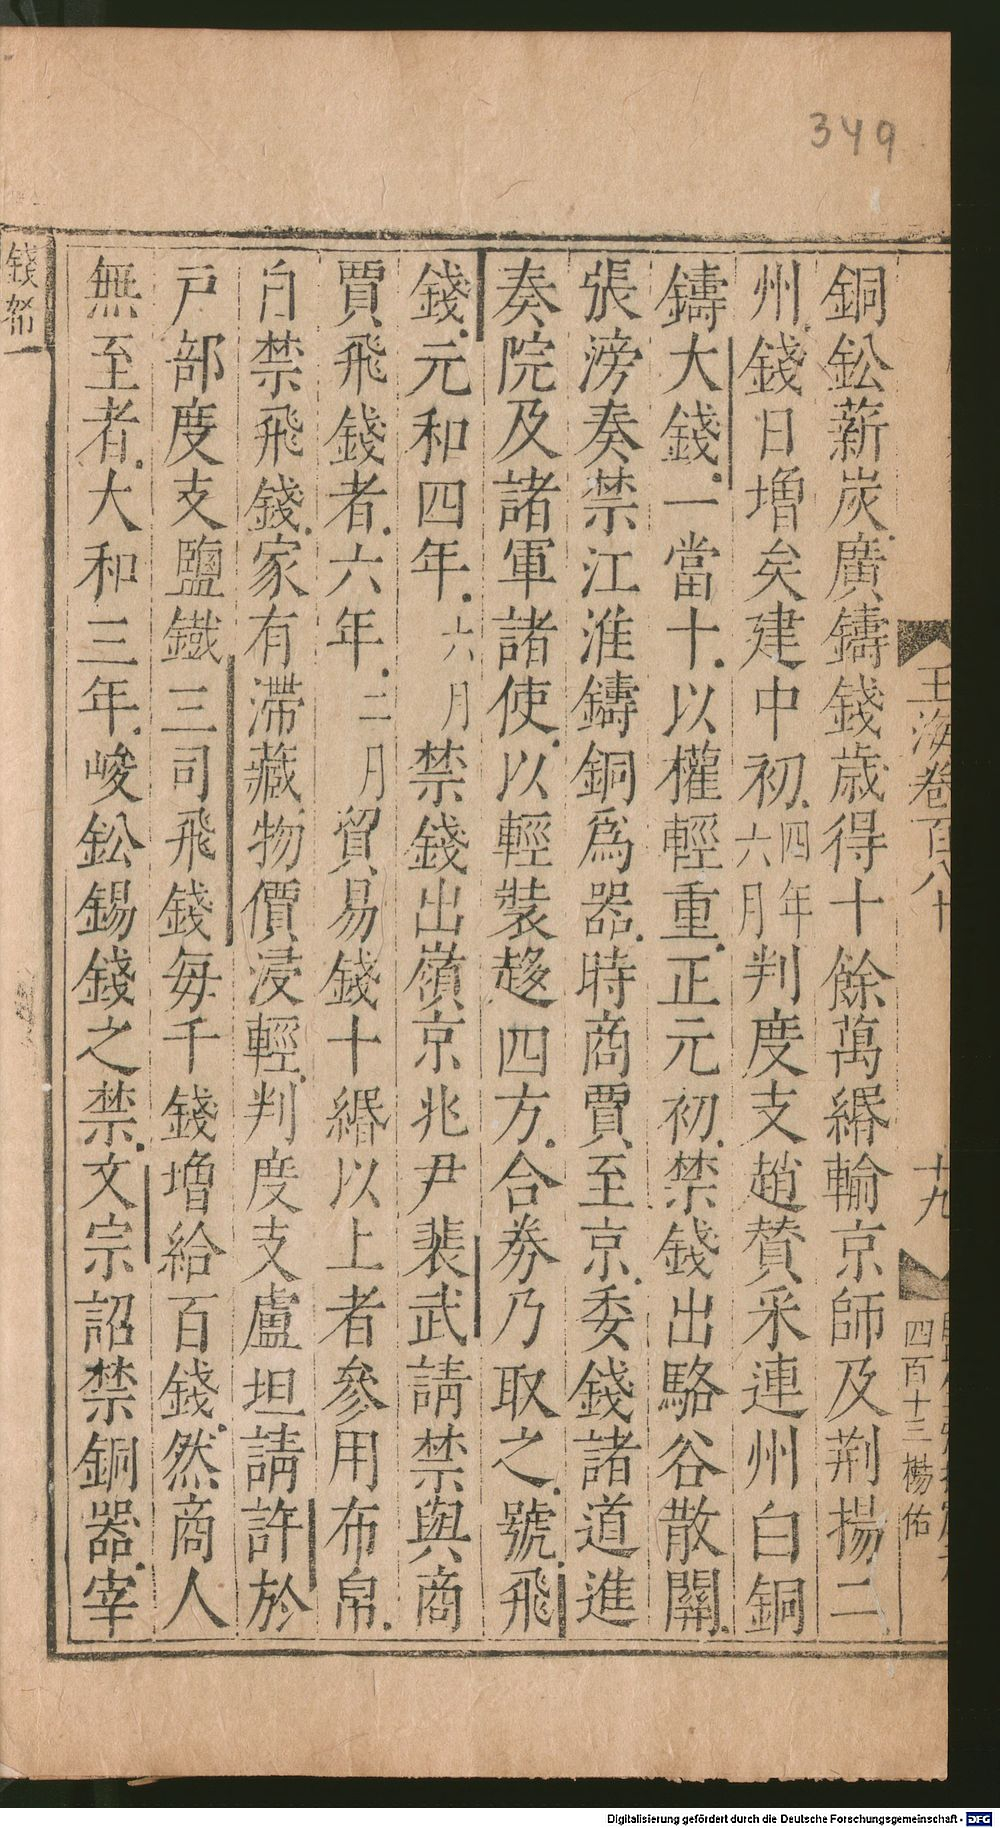 349
玉海卷百八十
十九
四百十三 楊佑
銅鈆薪炭廣鑄錢歳得十餘萬緡輸京師及荆揚二
州錢日増矣建中初四年六月判度支趙賛采連州白銅
鑄大錢一當十以權輕重正元初禁錢出駱谷散關
張滂奏禁江淮鑄銅爲器時商賈至京委錢諸道進
奏院及諸軍諸使以輕裝趍四方合券乃取之號飛
錢元和四年六月禁錢出嶺京兆尹裴武請禁與商
賈飛錢者六年二月貿易錢十緡以上者參用布帛
自禁飛錢家有滯藏物價浸輕判度支盧坦請許於
戸部度支鹽鐵三司飛錢毎千錢増給百錢然商人
無至者大和三年峻鈆錫錢之禁文宗詔禁銅器宰
錢幣一
Digitalisierung gefördert durch die Deutsche Forschungsgemeinschaft - DFG